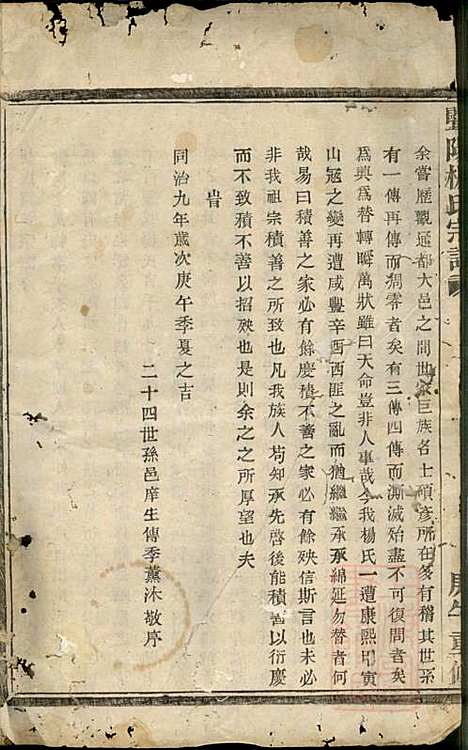 余嘗歷觀通都大邑之間世家巨族名士碩彥所在多有稽其世系
有一傳再傳而凋零者矣有三傳四傳而澌滅殆盡不可復問者矣
爲興爲替轉瞬萬狀雖曰天命豈非人事哉今我楊氏一遭康熙甲寅
山寇之變再遭咸豐辛酉西匪之亂而猶繼繼承承綿延勿替者何
哉易曰積善之家必有餘慶積不善之家必有餘殃信斯言也未必
非我祖宗積善之所致也凡我族人苟知承先啓後能積善以衍慶
而不致積不善以招殃也是則余之之所厚望也夫
旹
同治九年歲次庚午季夏之吉
二十四世孫邑庠生傳季薰沐敬序
楊氏宗譜
庚午重修